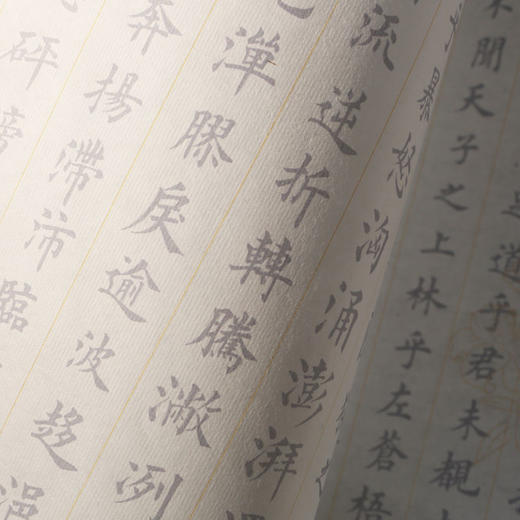 道乎君未覩
不聞天子之上林乎左蒼梧
暴怒洶涌澎湃
流逆折轉騰潎洌
潬膠戾逾波趍浥
奔揚滯沛臨
砰磅